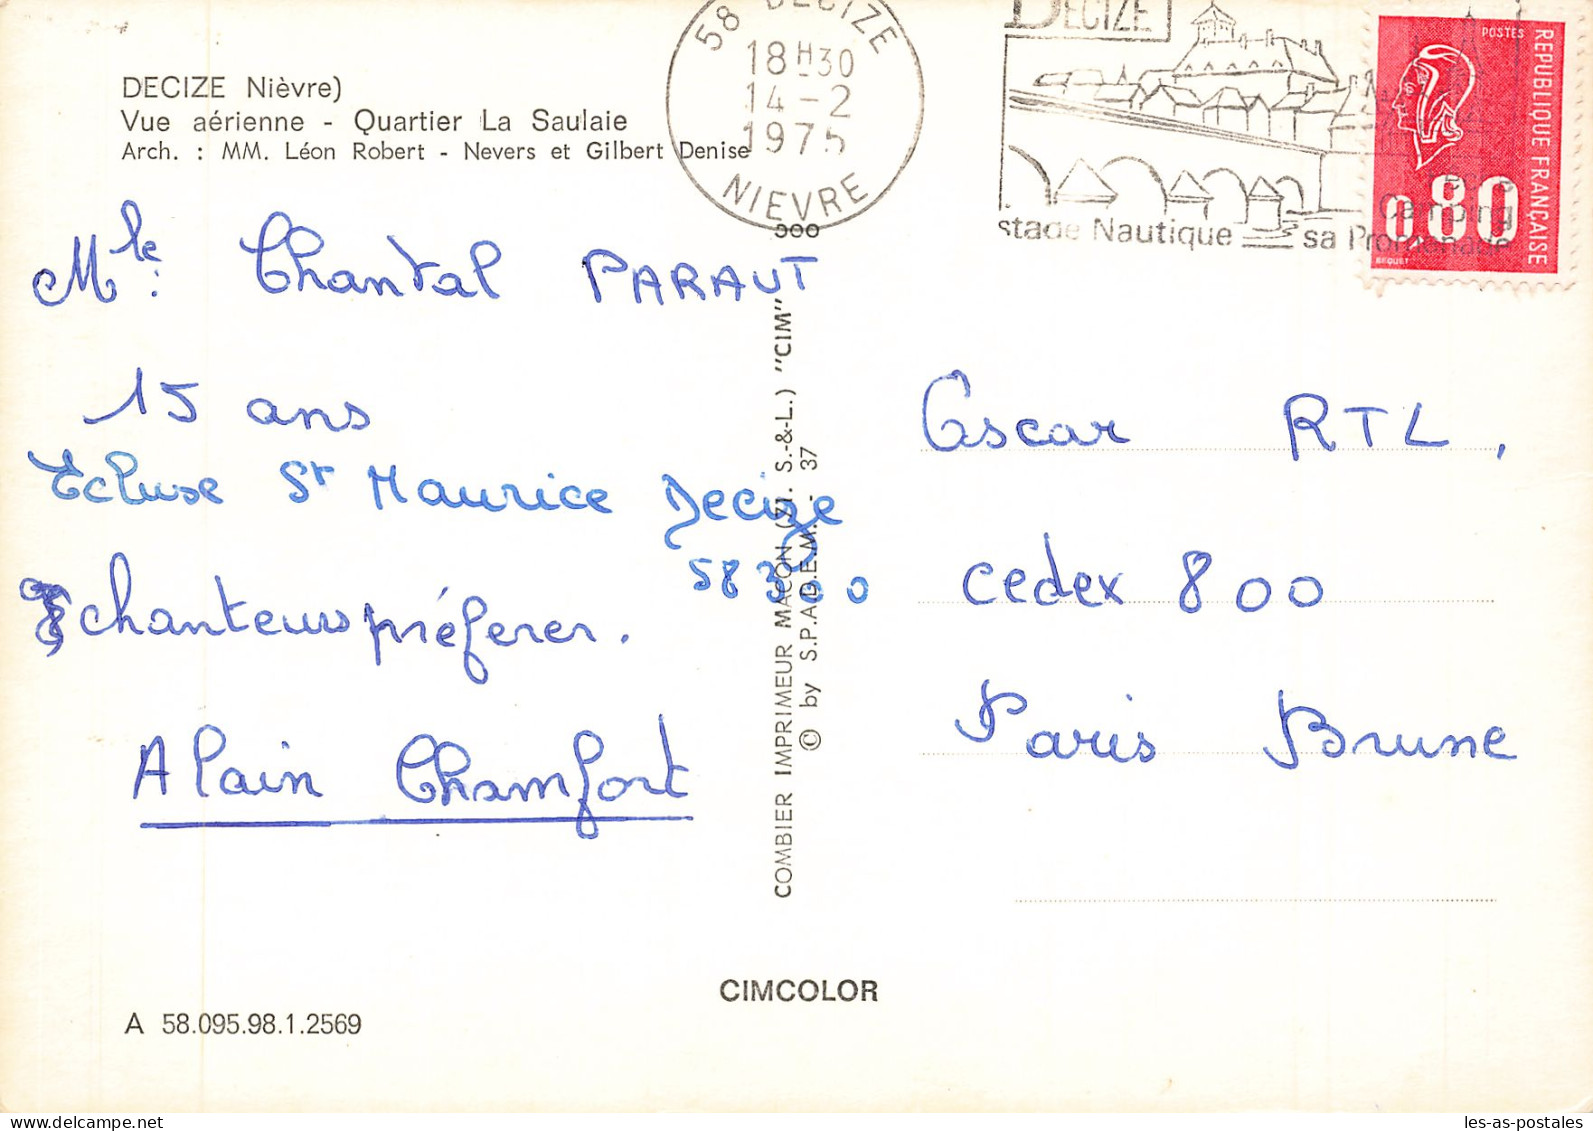 DECIZE Nièvre)
Vue aérienne - Quartier La Saulaie
Arch. : MM. Léon Robert - Nevers et Gilbert Denise
58 DECIZE
18H30
14-2
1975
NIEVRE
DECIZE
Camping
stade Nautique sa Promenade
POSTES
REPUBLIQUE FRANÇAISE
0,80
BEQUET
Mlle: Chantal PARAUT
15 ans
Ecluse St Maurice Decize
58300
chanteurs préferer.
Alain Chamfort
COMBIER IMPRIMEUR MACON (71. S.-&-L.) "CIM"
© by S.P.A.D.E.M. - 37
Oscar RTL,
cedex 800
Paris Brune
CIMCOLOR
A 58.095.98.1.2569
les-as-postales